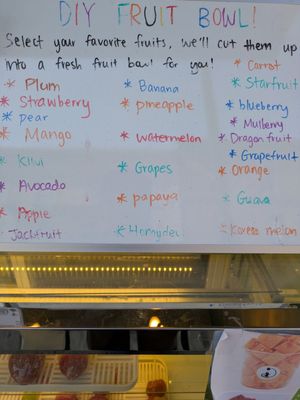 DIY FRUIT BOWL!
Select your favorite fruits, we'll cut them up
into a fresh fruit bowl for you!
* Plum
* Strawberry
* pear
* Mango
* Kiwi
* Avocado
* Apple
* Jackfruit
* Banana
* pineapple
* watermelon
* Grapes
* papaya
* Honydew
* Carrot
* Starfruit
* blueberry
* Mulberry
* Dragon fruit
* Grapefruit
* Orange
* Guava
* Korean melon